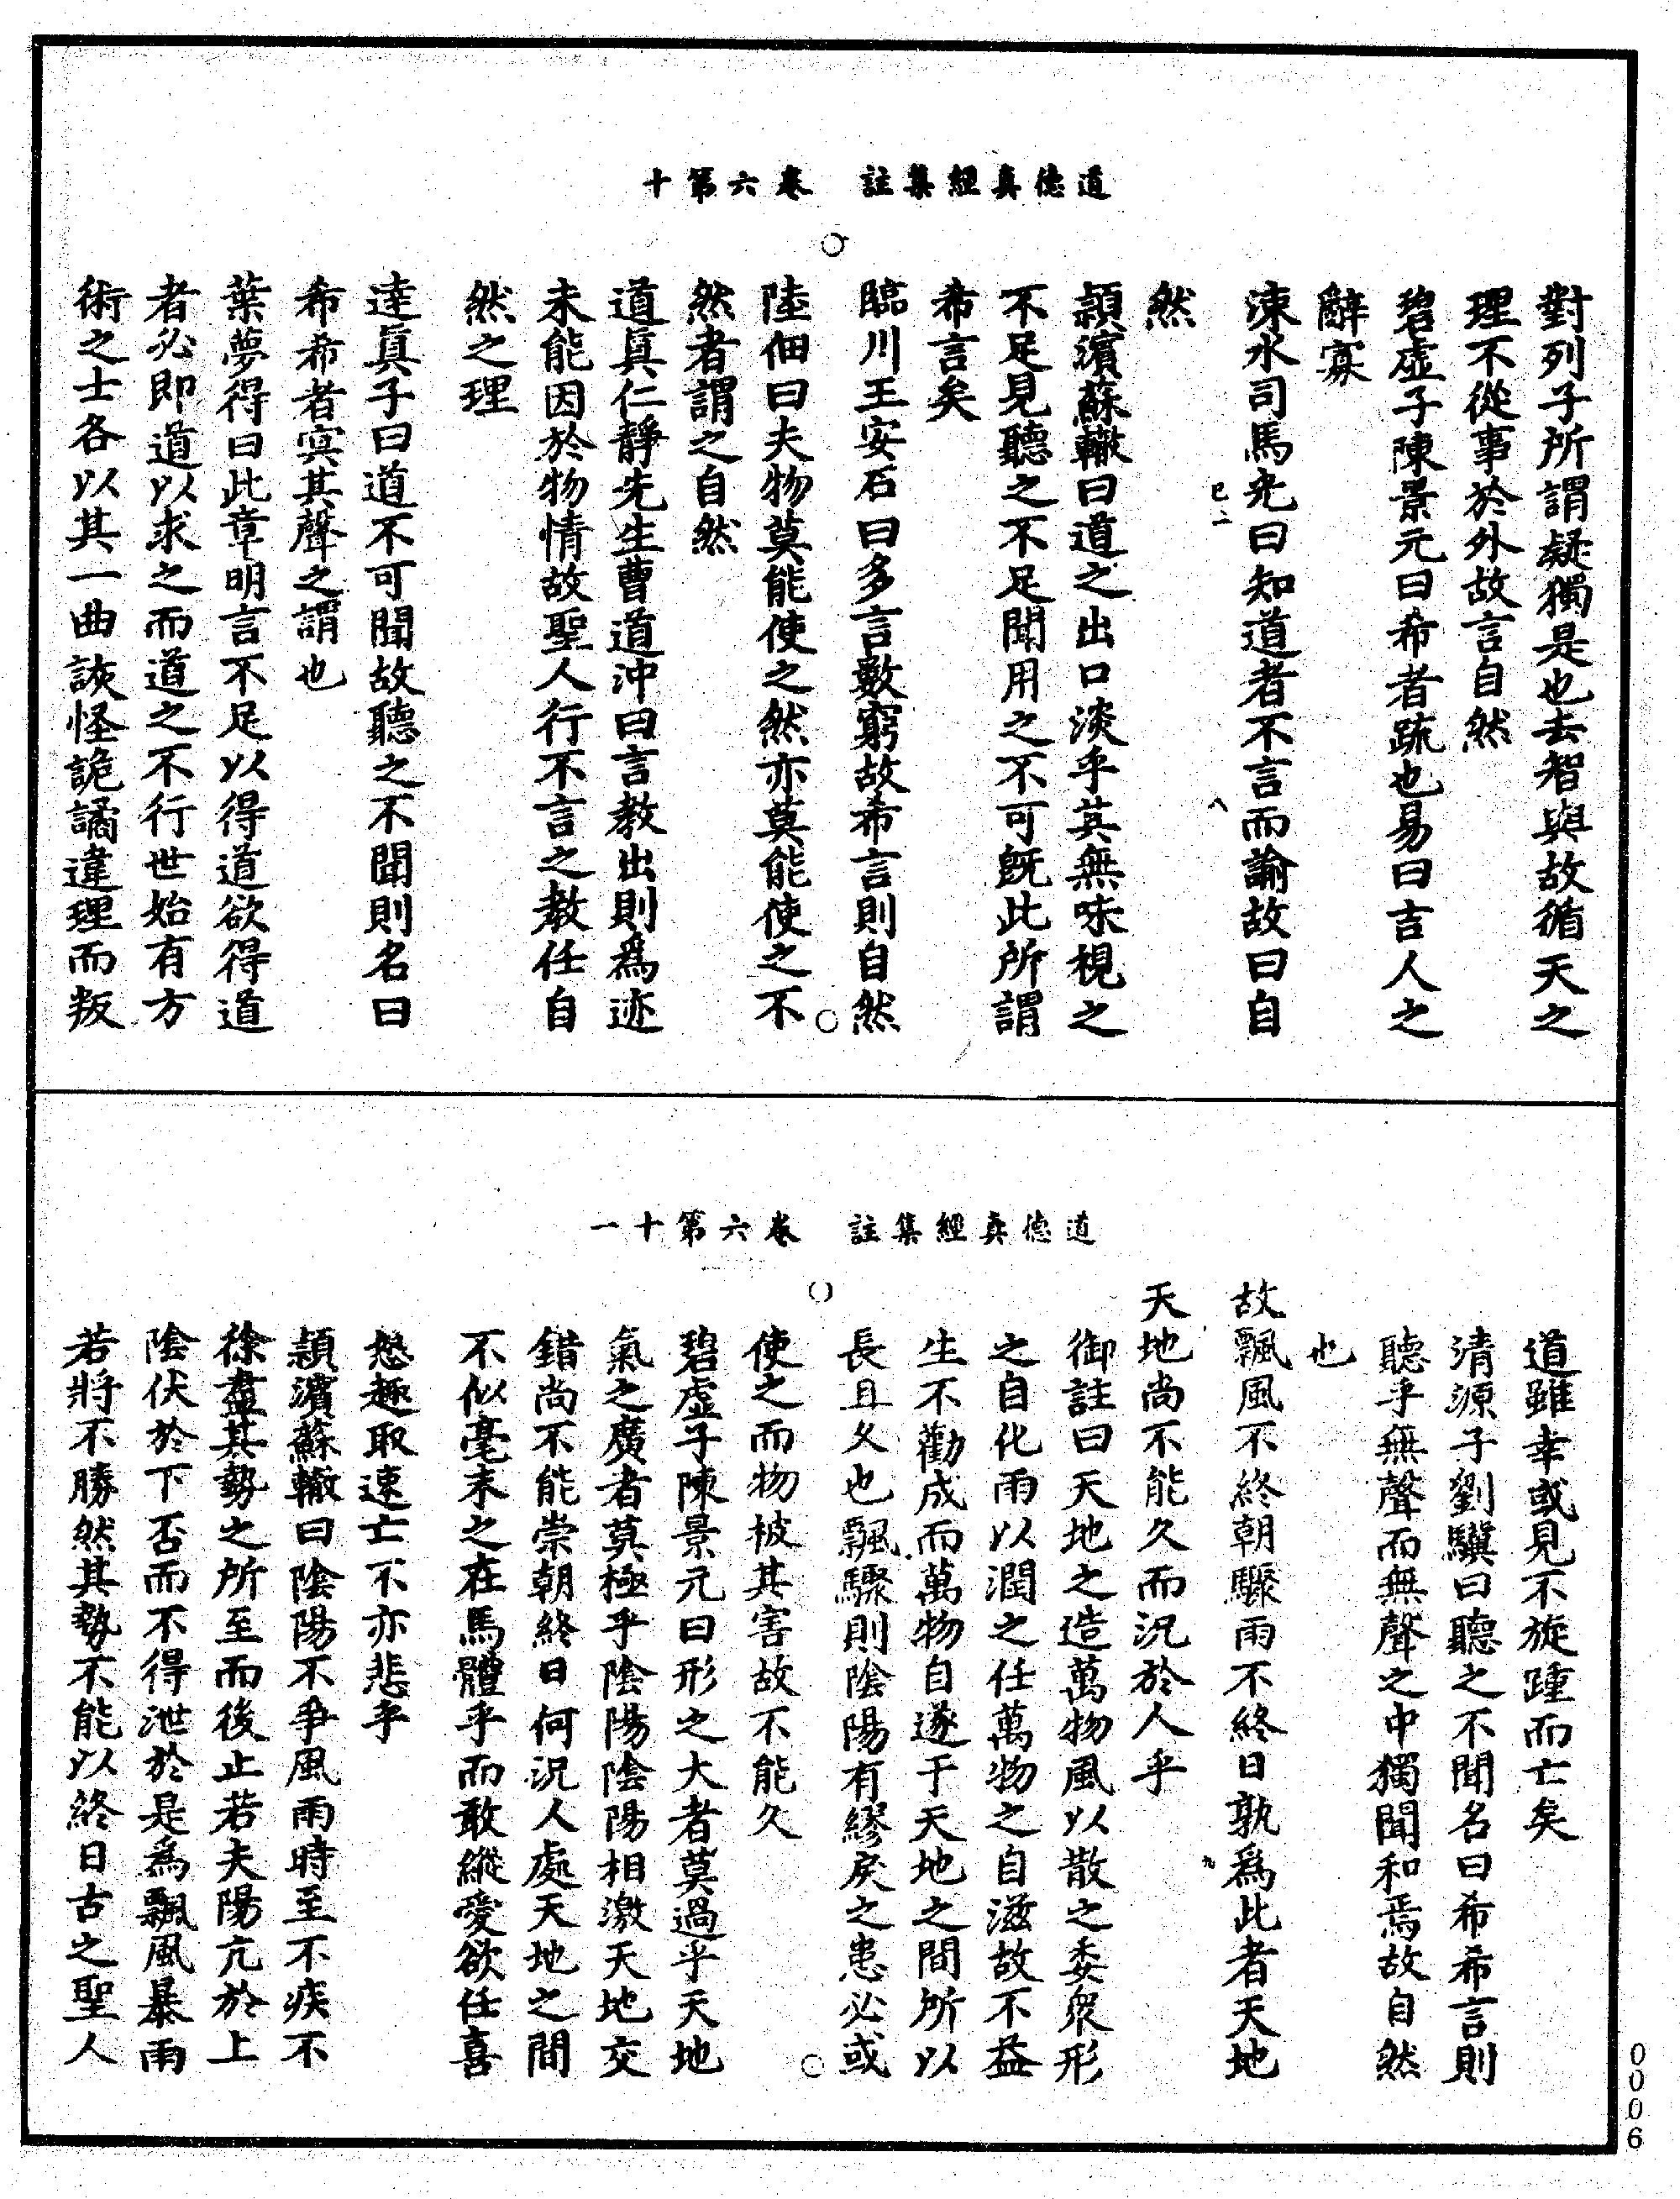 道德真經集註　卷六第十
對列子所謂疑獨是也去智與故循天之
理不從事於外故言自然
碧虛子陳景元曰希者疏也易曰吉人之
辭寡
涑水司馬光曰知道者不言而諭故曰自
然
潁濱蘇轍曰道之出口淡乎其無味視之
不足見聽之不足聞用之不可既此所謂
希言矣
臨川王安石曰多言數窮故希言則自然
陸佃曰夫物莫能使之然亦莫能使之不
然者謂之自然
道真仁靜先生曹道沖曰言教出則為迹
未能因於物情故聖人行不言之教任自
然之理
達真子曰道不可聞故聽之不聞則名曰
希希者寂其聲之謂也
葉夢得曰此章明言不足以得道欲得道
者必即道以求之而道之不行世始有方
術之士各以其一曲詼怪詭譎違理而叛
道德真經集註　卷六第十一
道雖幸或見不旋踵而亡矣
清源子劉驥曰聽之不聞名曰希希言則
聽乎無聲而無聲之中獨聞和焉故自然
也
故飄風不終朝驟雨不終日孰為此者天地
天地尚不能久而況於人乎
御註曰天地之造萬物風以散之委衆形
之自化雨以潤之任萬物之自滋故不益
生不勸成而萬物自遂于天地之間所以
長且久也飄驟則陰陽有繆戾之患必或
使之而物被其害故不能久
碧虛子陳景元曰形之大者莫過乎天地
氣之廣者莫極乎陰陽陰陽相激天地交
錯尚不能崇朝終日何況人處天地之間
不似毫末之在馬體乎而敢縱愛欲任喜
怒趣取速亡不亦悲乎
潁濱蘇轍曰陰陽不爭風雨時至不疾不
徐盡其勢之所至而後止若夫陽亢於上
陰伏於下否而不得泄於是為飄風暴雨
若將不勝然其勢不能以終日古之聖人
0006